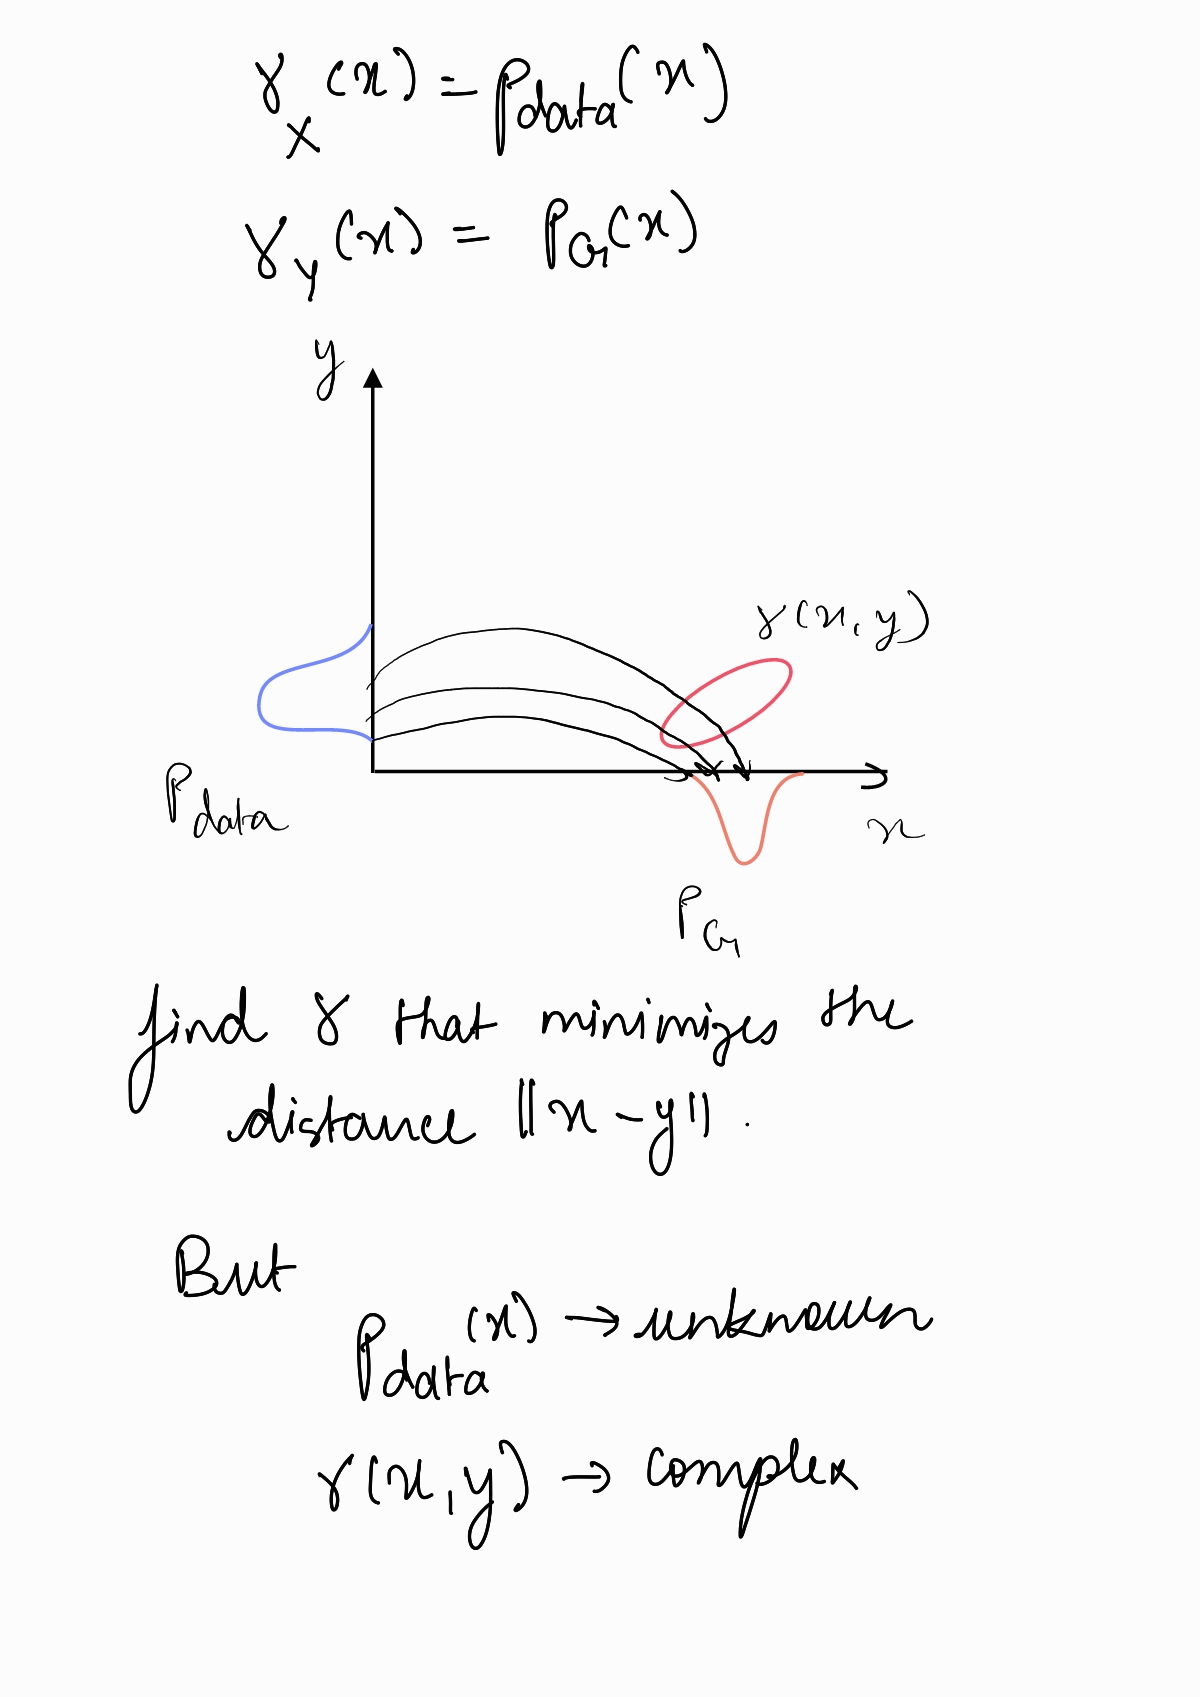 γ_X (x) = P_data (x)
γ_y (x) = P_G (x)
y
γ(x, y)
P_data
x
P_G
find γ that minimizes the
distance ||x - y|| .
But
P_data (x) → unknown
γ(x, y) → complex